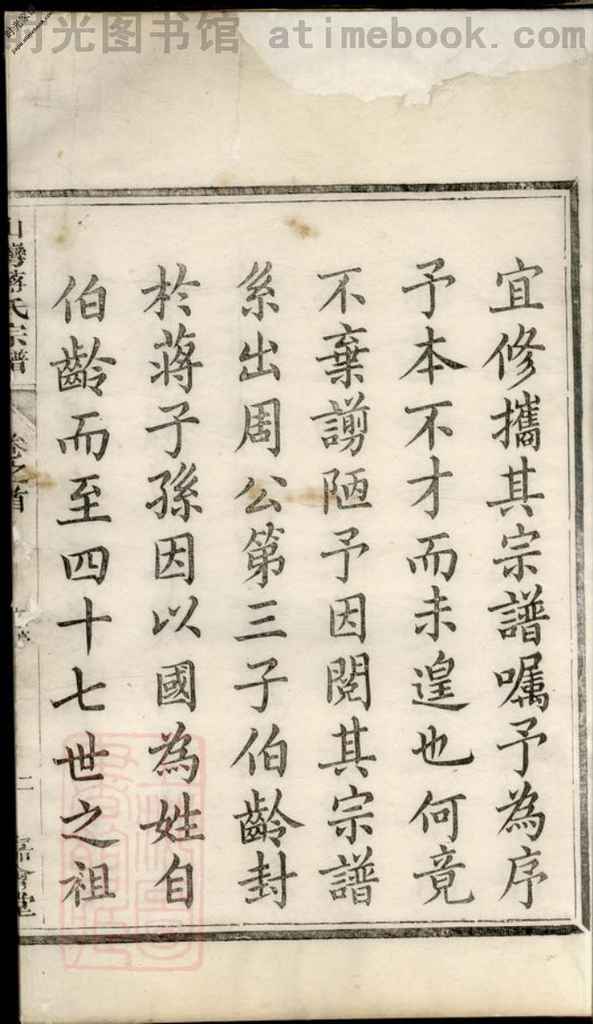 时光图书馆 atimebook.com
宜修攜其宗譜囑予為序
予本不才而未遑也何竟
不棄謭陋予因閱其宗譜
系出周公第三子伯齡封
於蔣子孫因以國為姓自
伯齡而至四十七世之祖
山灣蔣氏宗譜
卷之首
二